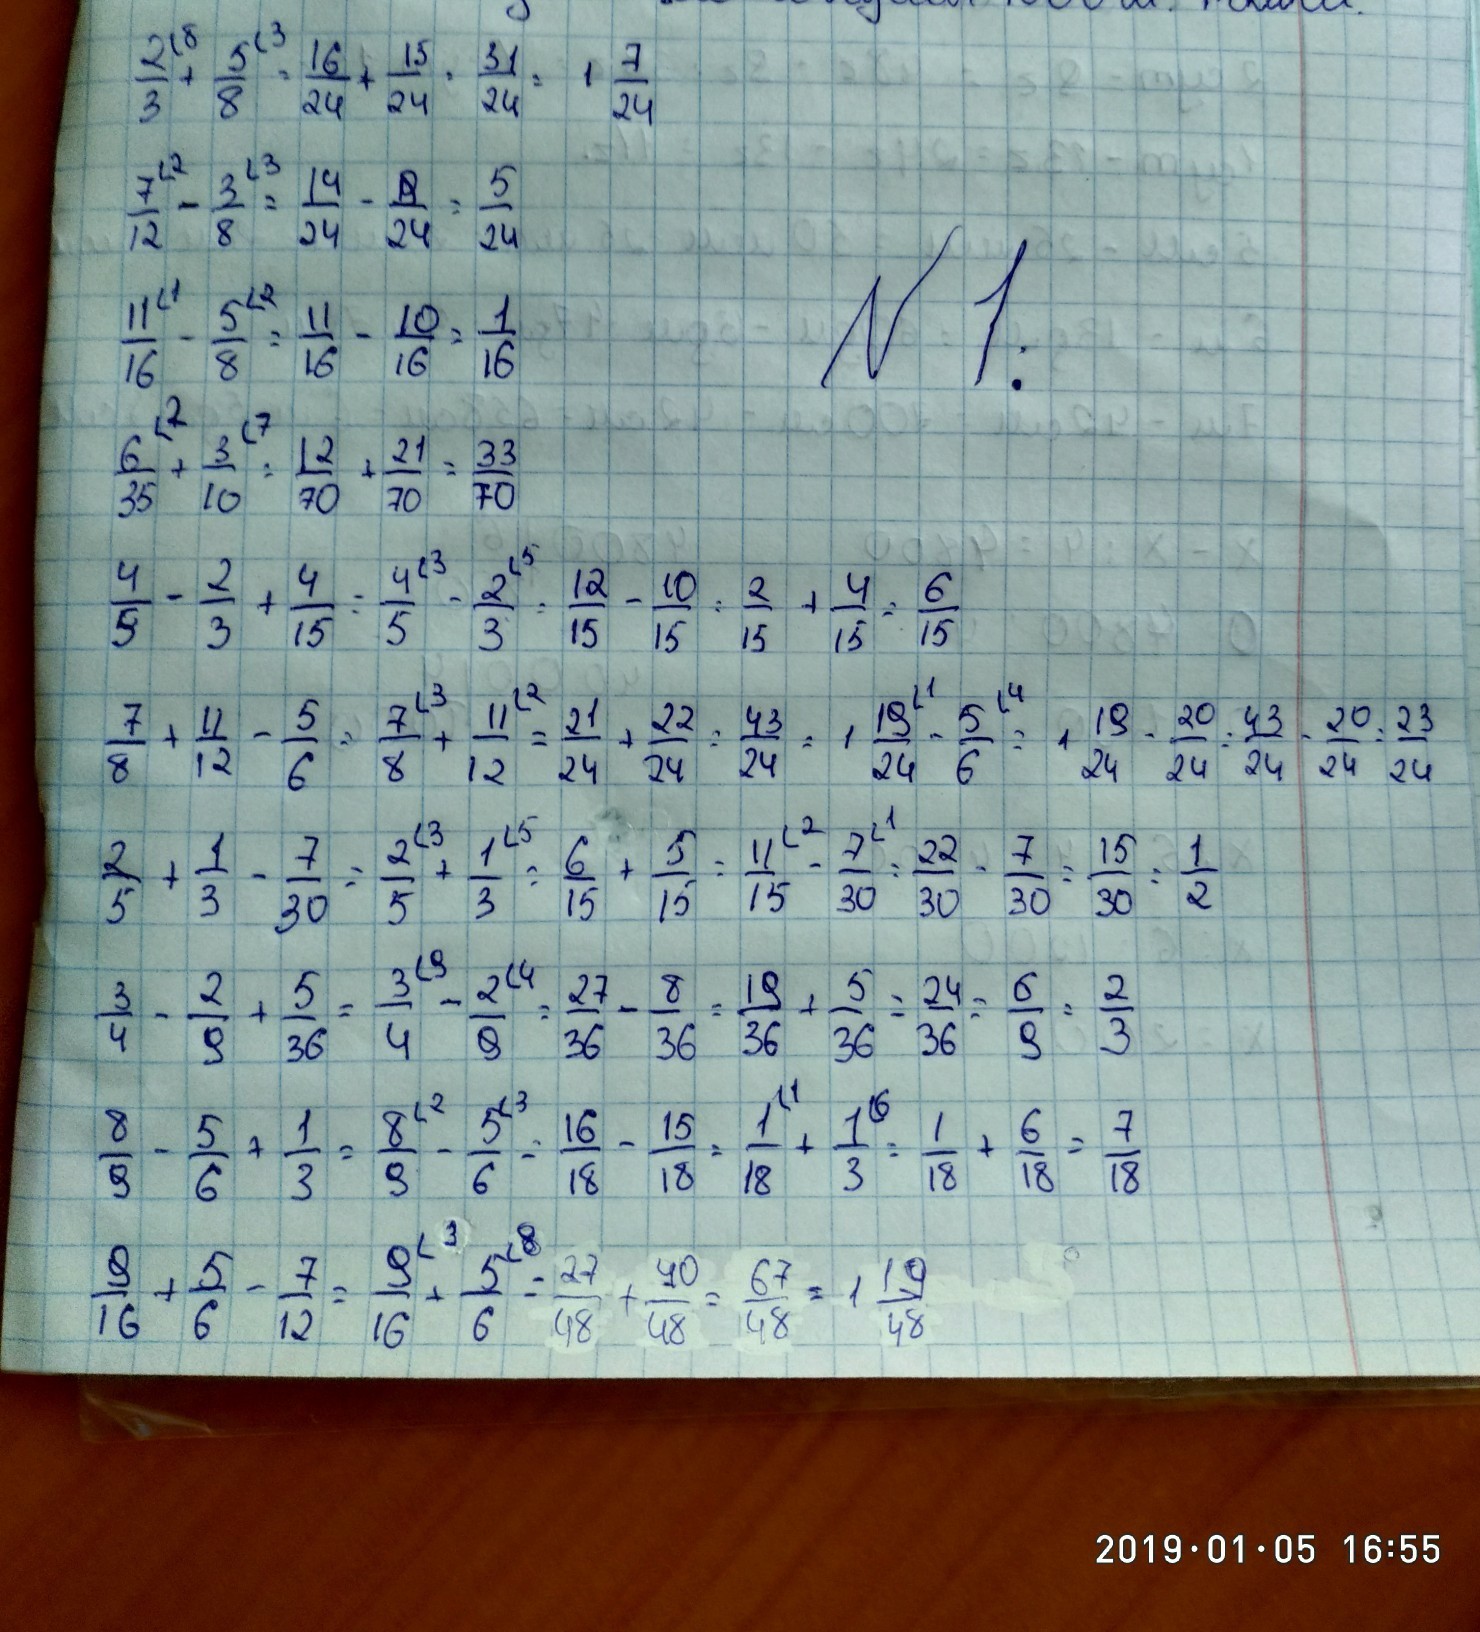 2/3 + 5/8 = 16/24 + 15/24 = 31/24 = 1 7/24
7/12 - 3/8 = 14/24 - 9/24 = 5/24
11/16 - 5/8 = 11/16 - 10/16 = 1/16
N 1.
6/35 + 3/10 = 12/70 + 21/70 = 33/70
4/5 - 2/3 + 4/15 = 4/5 - 2/3 = 12/15 - 10/15 = 2/15 + 4/15 = 6/15
7/8 + 11/12 - 5/6 = 7/8 + 11/12 = 21/24 + 22/24 = 43/24 = 1 19/24 - 5/6 = 1 19/24 - 20/24 = 43/24 - 20/24 = 23/24
2/5 + 1/3 - 7/30 = 2/5 + 1/3 = 6/15 + 5/15 = 11/15 - 7/30 = 22/30 - 7/30 = 15/30 = 1/2
3/4 - 2/9 + 5/36 = 3/4 - 2/9 = 27/36 - 8/36 = 19/36 + 5/36 = 24/36 = 6/9 = 2/3
8/9 - 5/6 + 1/3 = 8/9 - 5/6 = 16/18 - 15/18 = 1/18 + 1/3 = 1/18 + 6/18 = 7/18
9/16 + 5/6 - 7/12 = 9/16 + 5/6 = 27/48 + 40/48 = 67/48 = 1 19/48
2019·01·05 16:55